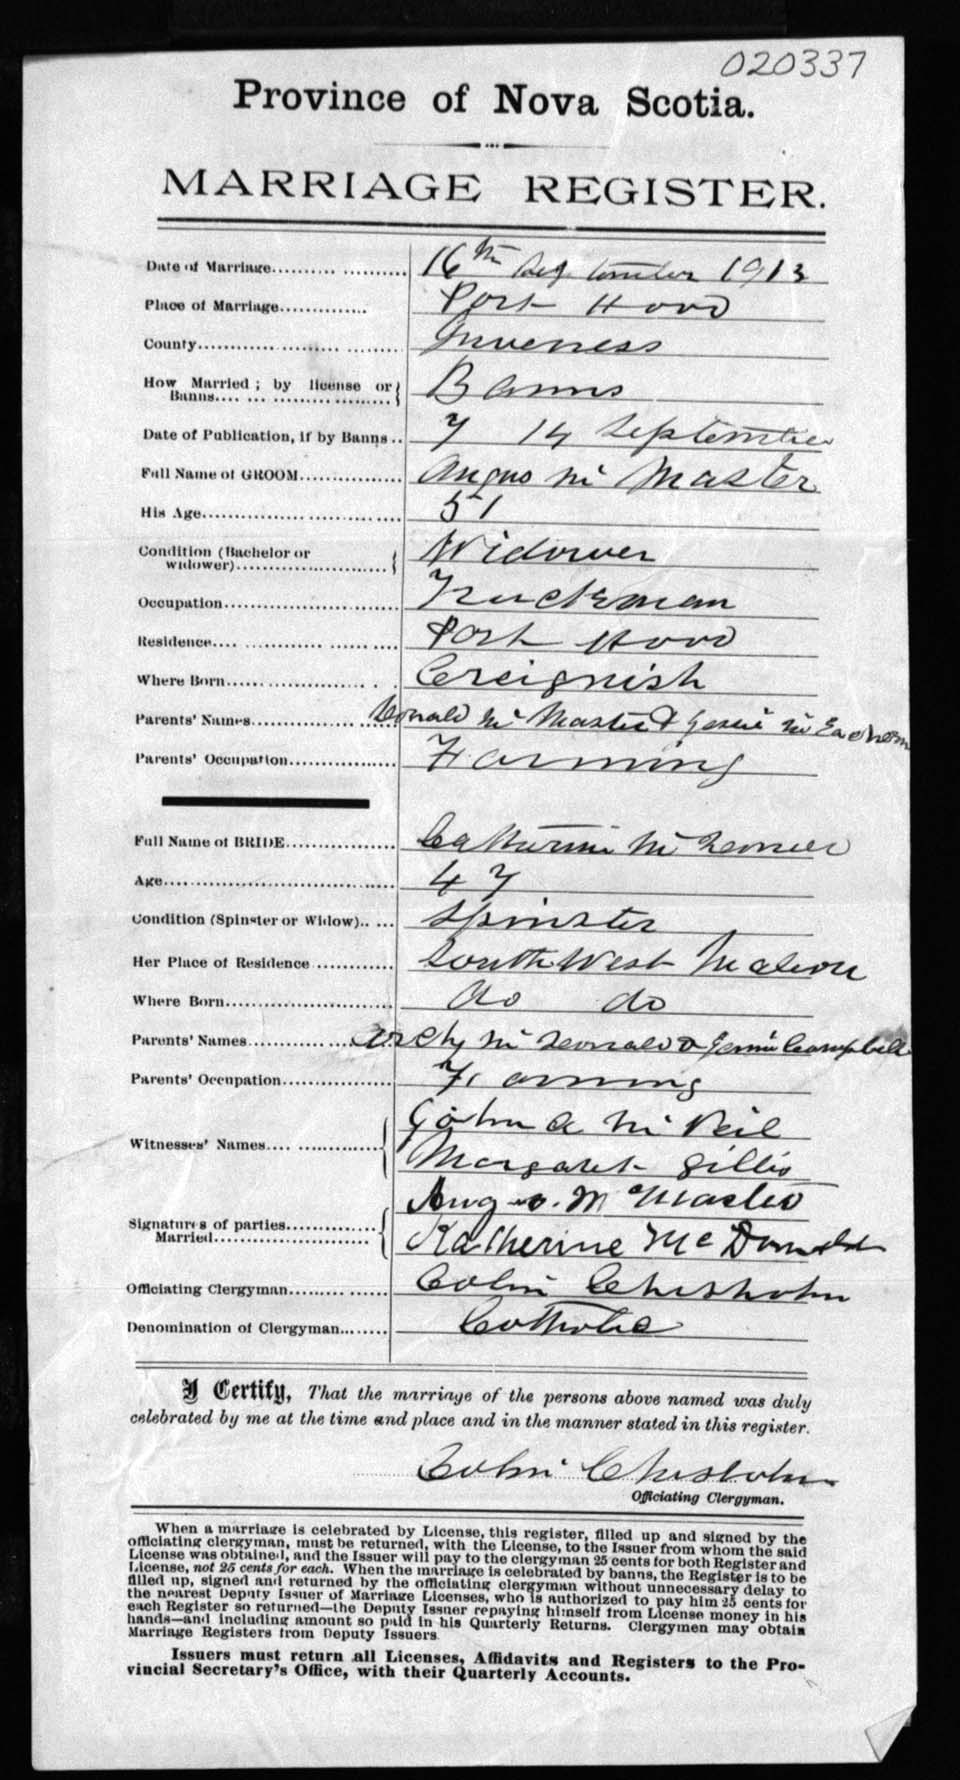 020337
Province of Nova Scotia.
MARRIAGE REGISTER.
Date of Marriage.................. 16th September 1913
Place of Marriage.............. Port Hood
County.................................. Inverness
How Married ; by license or Banns.................. Banns
Date of Publication, if by Banns .. 7 14 September
Full Name of GROOM.................. Angus Mc Master
His Age.................................. 51
Condition (Bachelor or widower)........................ Widower
Occupation............................. Truckman
Residence............................... Port Hood
Where Born............................. Creignish
Parents' Names...................... Donald Mc Master & Jessie Mc Eachern
Parents' Occupation.................. Farming
Full Name of BRIDE.................. Catherine Mc Donald
Age........................................ 47
Condition (Spinster or Widow)...... Spinster
Her Place of Residence ............. South West Mabou
Where Born............................. do do
Parents' Names...................... Archy Mc Donald & Jennie Campbell
Parents' Occupation.................. Farming
Witnesses' Names.................... John A Mc Neil
Margaret Gillis
Signatures of parties Married........................ Angus McMaster
Katherine McDonald
Officiating Clergyman............... Colin Chisholm
Denomination of Clergyman.......... Catholic
I Certify, That the marriage of the persons above named was duly
celebrated by me at the time and place and in the manner stated in this register.
Colin Chisholm
Officiating Clergyman.
When a marriage is celebrated by License, this register, filled up and signed by the
officiating clergyman, must be returned, with the License, to the Issuer from whom the said
License was obtained, and the Issuer will pay to the clergyman 25 cents for both Register and
License, not 25 cents for each. When the marriage is celebrated by banns, the Register is to be
filled up, signed and returned by the officiating clergyman without unnecessary delay to
the nearest Deputy Issuer of Marriage Licenses, who is authorized to pay him 25 cents for
each Register so returned—the Deputy Issuer repaying himself from License money in his
hands—and including amount so paid in his Quarterly Returns. Clergymen may obtain
Marriage Registers from Deputy Issuers
Issuers must return all Licenses, Affidavits and Registers to the Pro-
vincial Secretary's Office, with their Quarterly Accounts.